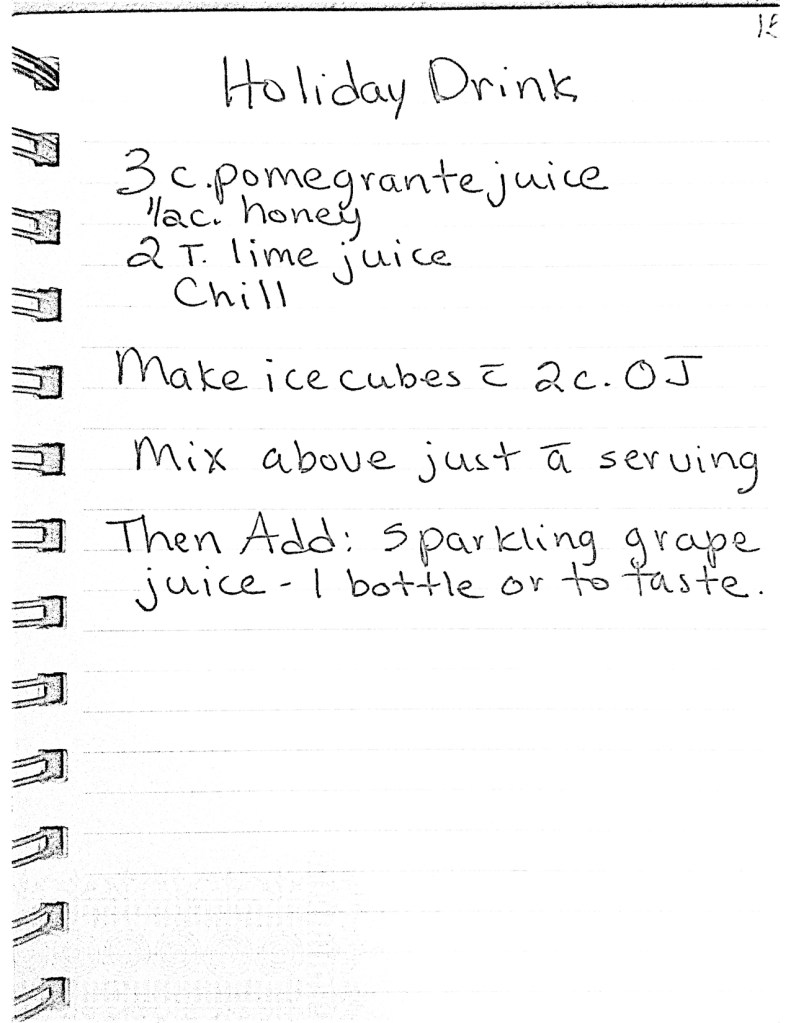 Holiday Drink
3 c. pomegrante juice
1/2 c. honey
2 T. lime juice
Chill
Make ice cubes c̄ 2c. OJ
Mix above just ā serving
Then Add: Sparkling grape
juice - 1 bottle or to taste.